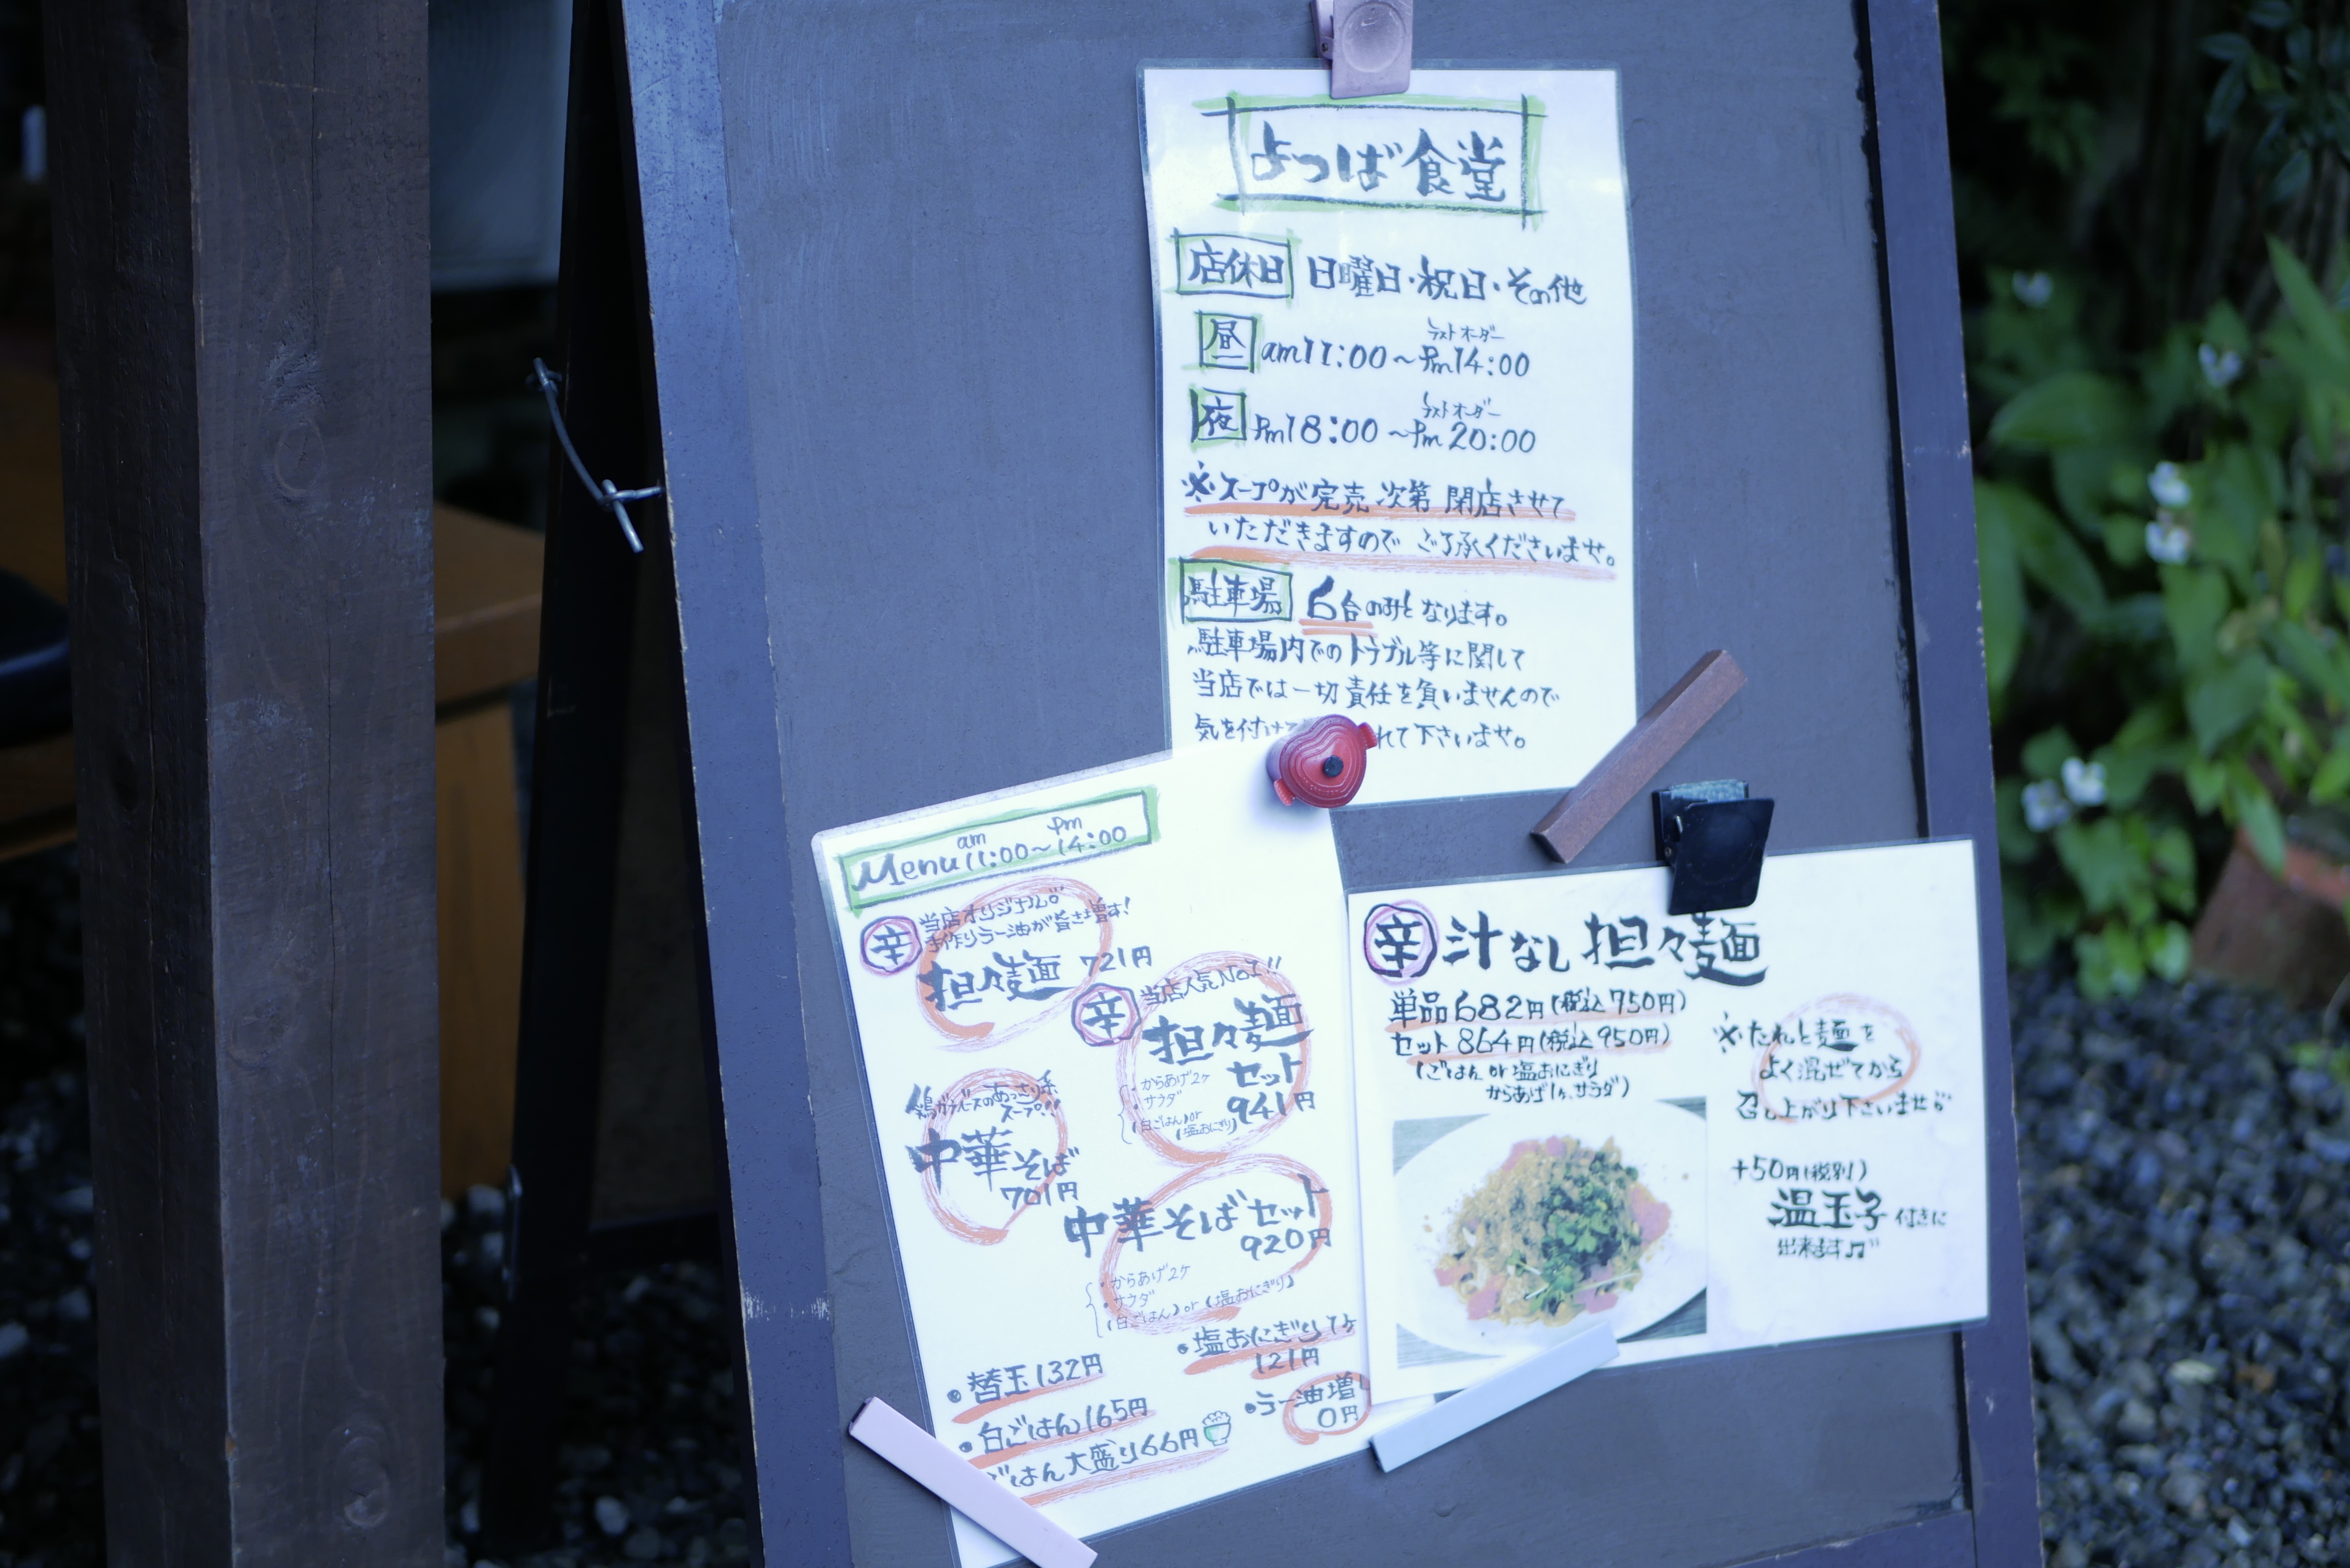 よつば食堂
店休日 日曜日・祝日・その他
ラストオーダー
昼 am11:00～Pm14:00
ラストオーダー
夜 Pm18:00～Pm20:00
※スープが完売次第 閉店させて
いただきますので ご了承くださいませ。
駐車場 6台のみと なります。
駐車場内でのトラブル等に関して
当店では一切責任を負いませんので
気を付けて れて下さいませ。
Menu am11:00～pm14:00
辛 当店オリジナル。
手作りラー油が旨さ増す!
担々麺 721円
辛 当店人気No1!!
担々麺
セット
941円
・からあげ2ヶ
・サラダ
(白ごはん)or
(塩おにぎり)
鶏ガラベースのあっさり系
スープ!!
中華そば
701円
中華そばセット
920円
・からあげ2ヶ
・サラダ
(白ごはん)or(塩おにぎり)
・替玉132円
・白ごはん165円
ごはん大盛り66円
・塩おにぎり
121円
・ラー油増し
0円
辛 汁なし担々麺
単品682円(税込750円)
セット864円(税込950円)
(ごはんor塩おにぎり
からあげ1ヶ、サラダ)
※たれと麺を
よく混ぜてから
召し上がり下さいませ。
+50円(税別)
温玉子付きに
出来ます♫